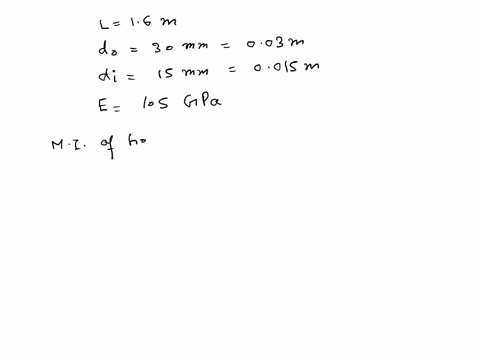 L = 1.6 m
do = 30 mm = 0.03 m
di = 15 mm = 0.015 m
E = 105 GPa
M.I. of ho